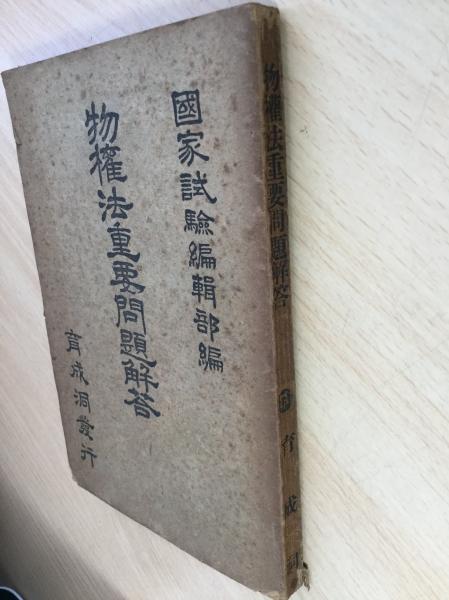 國家試驗編輯部編
物權法重要問題解答
育成洞發行
物權法重要問題解答
育成洞